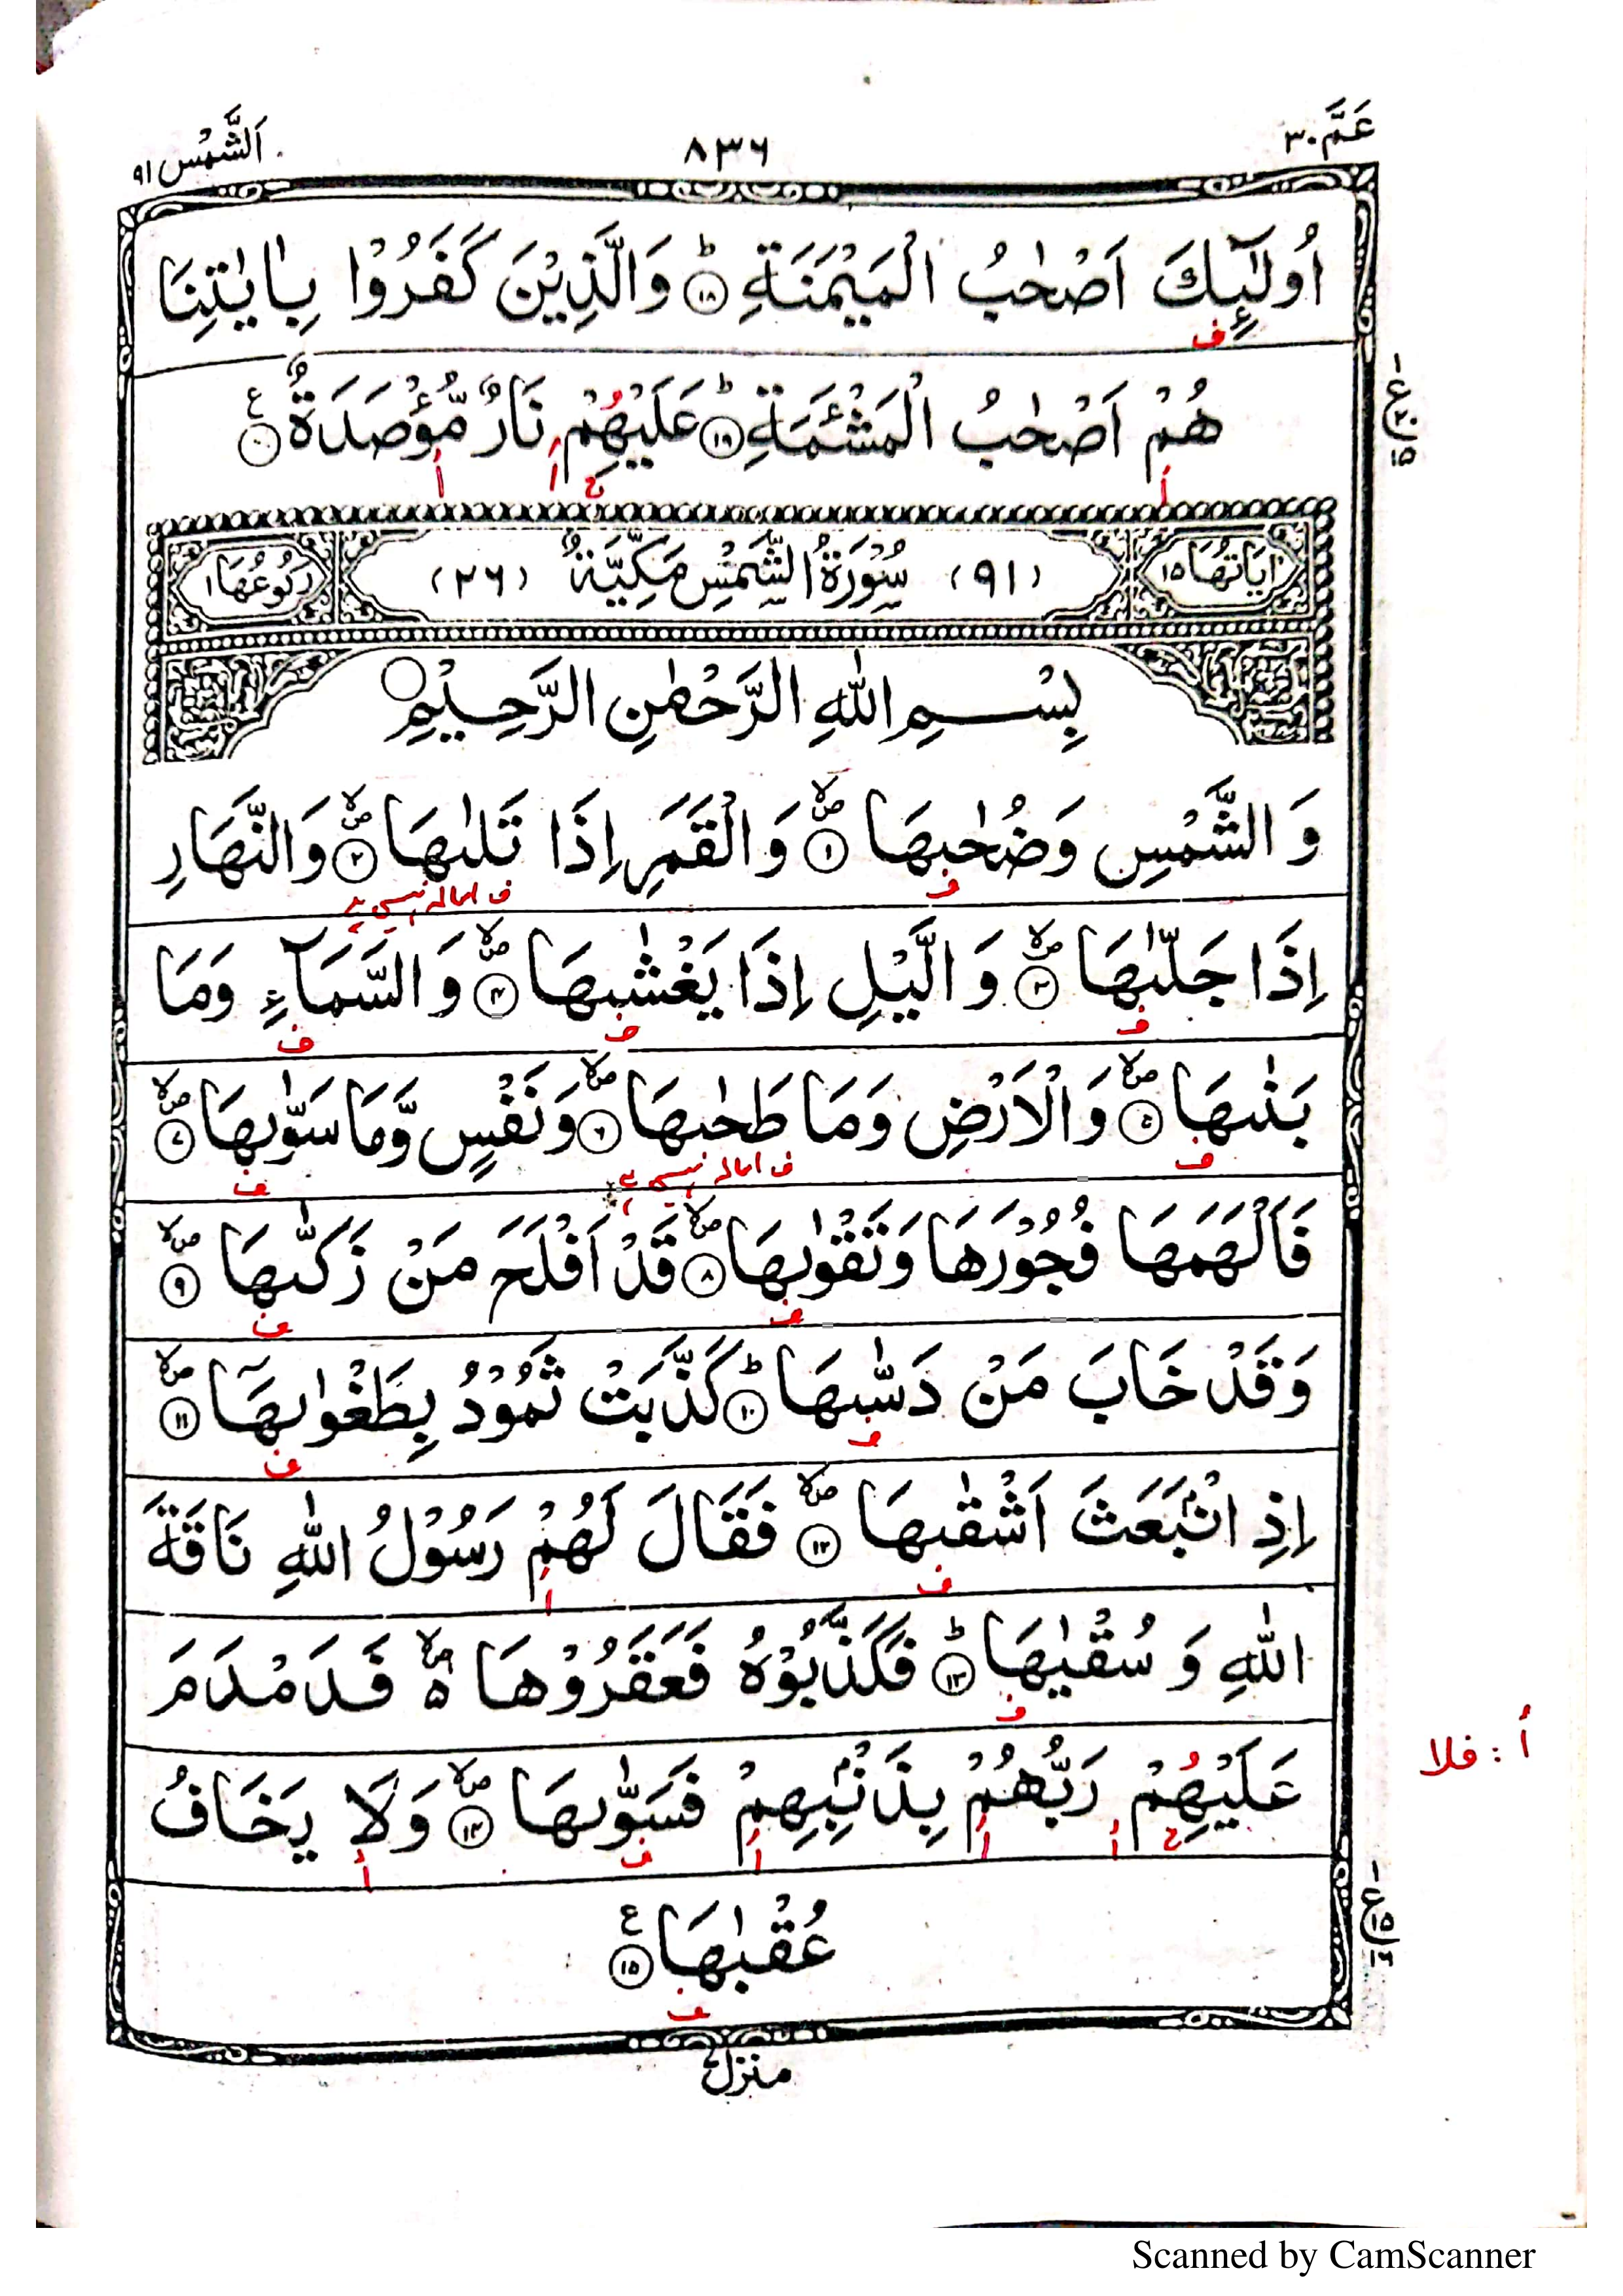 عَمَّ ٣٠
٨٣٦
اَلشَّمْس ٩١
اُولٰٓئِكَ اَصْحٰبُ الْمَيْمَنَةِ ؕ ١٨ وَالَّذِيْنَ كَفَرُوْا بِاٰيٰتِنَا
ف
هُمْ اَصْحٰبُ الْمَشْئَمَةِ ؕ ١٩ عَلَيْهِمْ نَارٌ مُّؤْصَدَةٌ ع ٢٠
أ ح أ أ
اٰيَاتُهَا ١٥ (٩١) سُوْرَةُ الشَّمْسِ مَكِّيَّةٌ (٢٦) رُكُوْعُهَا ١
بِسْمِ اللّٰهِ الرَّحْمٰنِ الرَّحِيْمِ
وَالشَّمْسِ وَضُحٰىهَا ١ وَالْقَمَرِ اِذَا تَلٰىهَا ٢ وَالنَّهَارِ
ف ف امالہ نہیں ہے
اِذَا جَلّٰىهَا ٣ وَالَّيْلِ اِذَا يَغْشٰىهَا ٤ وَالسَّمَآءِ وَمَا
ف ف ف
بَنٰىهَا ٥ وَالْاَرْضِ وَمَا طَحٰىهَا ٦ وَنَفْسٍ وَّمَا سَوّٰىهَا ٧
ف ف امالہ نہیں ہے ف
فَاَلْهَمَهَا فُجُوْرَهَا وَتَقْوٰىهَا ٨ قَدْ اَفْلَحَ مَنْ زَكّٰىهَا ٩
ف ف
وَقَدْ خَابَ مَنْ دَسّٰىهَا ؕ ١٠ كَذَّبَتْ ثَمُوْدُ بِطَغْوٰىهَآ ١١
ف ف
اِذِ انْۢبَعَثَ اَشْقٰىهَا ١٢ فَقَالَ لَهُمْ رَسُوْلُ اللّٰهِ نَاقَةَ
ف أ
اللّٰهِ وَ سُقْيٰهَا ؕ ١٣ فَكَذَّبُوْهُ فَعَقَرُوْهَا فَدَمْدَمَ
ف
عَلَيْهِمْ رَبُّهُمْ بِذَنْۢبِهِمْ فَسَوّٰىهَا ١٤ وَلَا يَخَافُ
ح أ أ أ ف أ
أ : فلا
عُقْبٰهَا ع ١٥
ف
منزل
Scanned by CamScanner